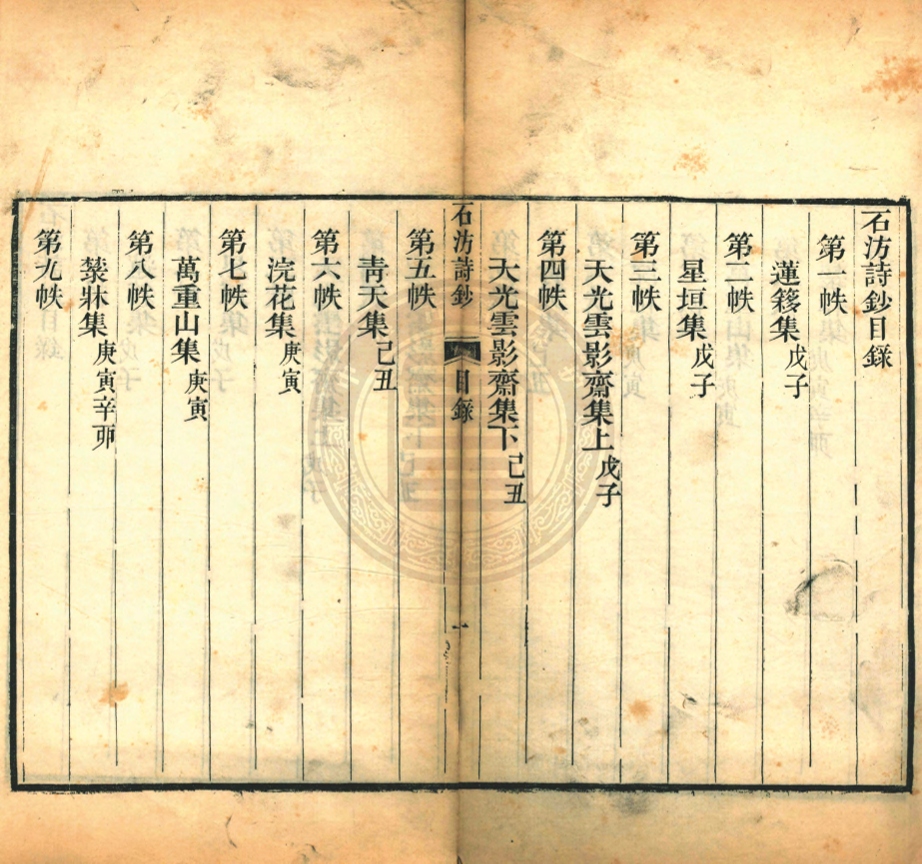 石汸詩鈔目錄
第一帙
蓮簃集戊子
第二帙
星垣集戊子
第三帙
天光雲影齋集上戊子
第四帙
天光雲影齋集下己丑
石汸詩鈔 目錄 一
第五帙
靑天集己丑
第六帙
浣花集庚寅
第七帙
萬重山集庚寅
第八帙
集庚寅辛卯
第九帙